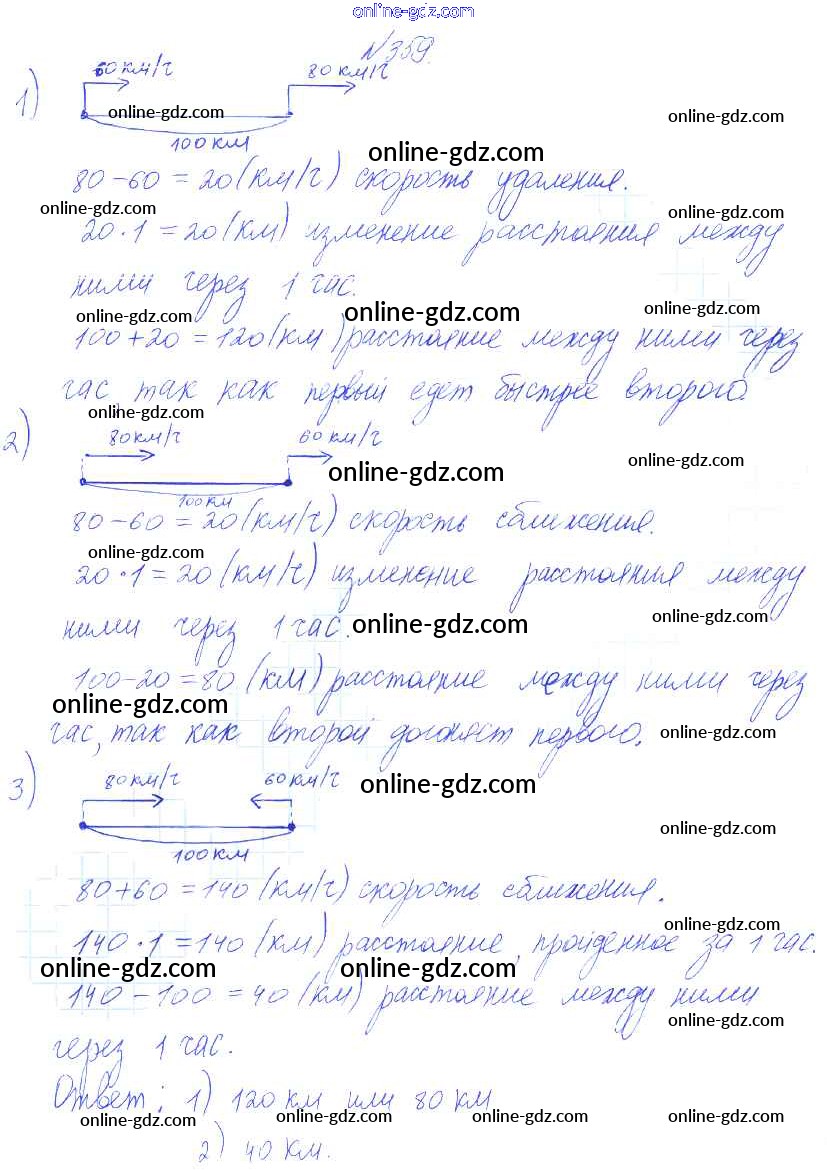 online-gdz.com
№359.
60 км/ч 80 км/ч
1)
online-gdz.com online-gdz.com
100 км
online-gdz.com
80-60=20(км/ч) скорость удаления.
online-gdz.com online-gdz.com
20·1=20(км) изменение расстояния между
ними через 1 час.
online-gdz.com online-gdz.com online-gdz.com
100+20=120(км) расстояние между ними через
час, так как первый едет быстрее второго.
online-gdz.com
2) 80 км/ч 60 км/ч
online-gdz.com online-gdz.com
100 км
80-60=20(км/ч) скорость сближения.
online-gdz.com
20·1=20(км/ч) изменение расстояния между
online-gdz.com
ними через 1 час. online-gdz.com
100-20=80 (км) расстояние между ними через
online-gdz.com
час, так как второй догоняет первого. online-gdz.com
3) 80 км/ч 60 км/ч online-gdz.com
online-gdz.com
100 км
80+60=140(км/ч) скорость сближения.
online-gdz.com
140·1=140(км) расстояние, пройденное за 1 час.
online-gdz.com online-gdz.com
140-100=40(км) расстояние между ними
online-gdz.com
через 1 час.
Ответ: 1) 120 км или 80 км
online-gdz.com online-gdz.com online-gdz.com online-gdz.com
2) 40 км.